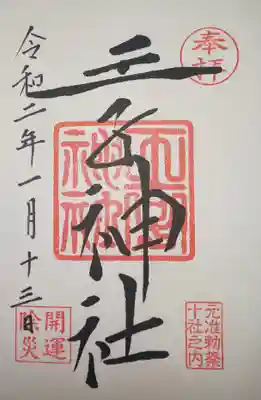 奉拝
王子神社
王子神社
元准勅祭
十社之内
令和二年一月十三日
開運
除災